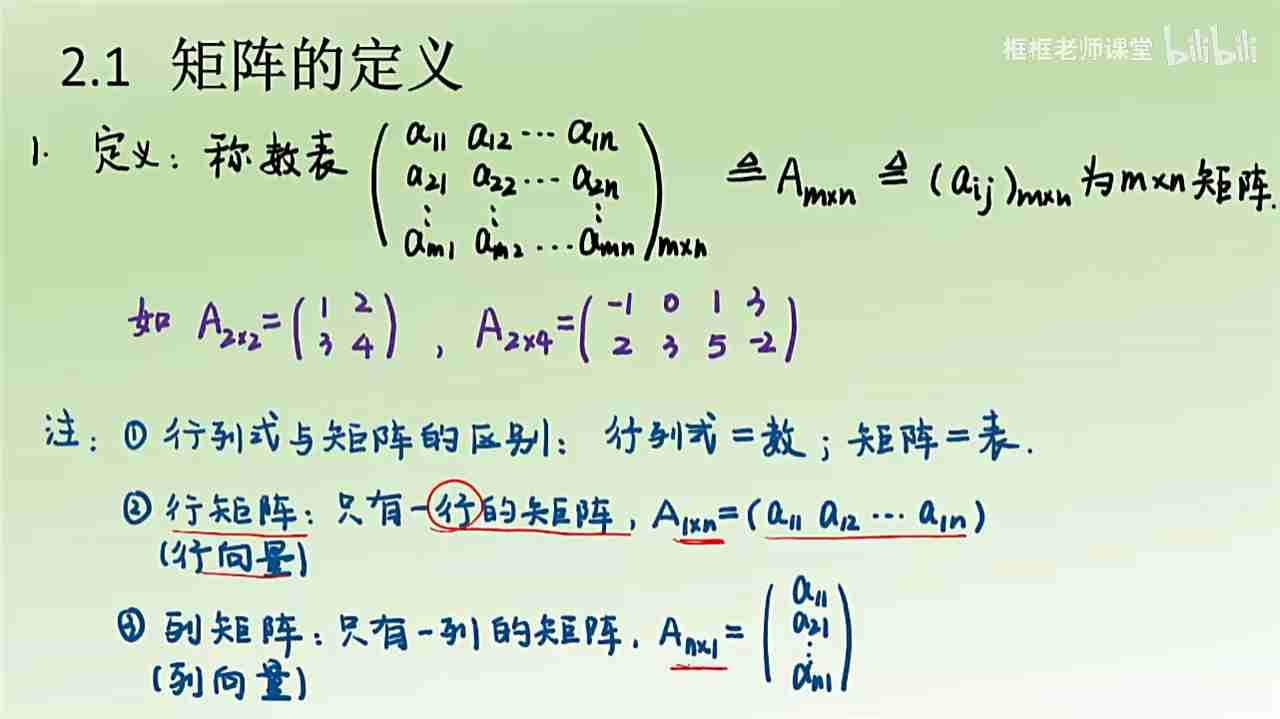 框框老师课堂 bilibili
2.1 矩阵的定义
1. 定义：称数表 (a11 a12 … a1n
a21 a22 … a2n
⋮ ⋮ ⋮
am1 am2 … amn)m×n ≜ Am×n ≜ (aij)m×n 为m×n矩阵.
如 A2×2 = (1 2
3 4) , A2×4 = (-1 0 1 3
2 3 5 -2)
注：① 行列式与矩阵的区别：行列式=数；矩阵=表.
② 行矩阵：只有一行的矩阵, A1×n = (a11 a12 … a1n)
(行向量)
③ 列矩阵：只有一列的矩阵. An×1 = (a11
a21
⋮
an1)
(列向量)